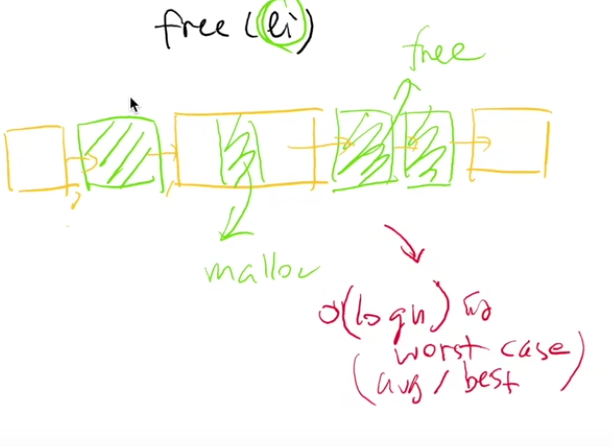 free (li)
free
malloc
O(log n) in
worst case
(avg / best)